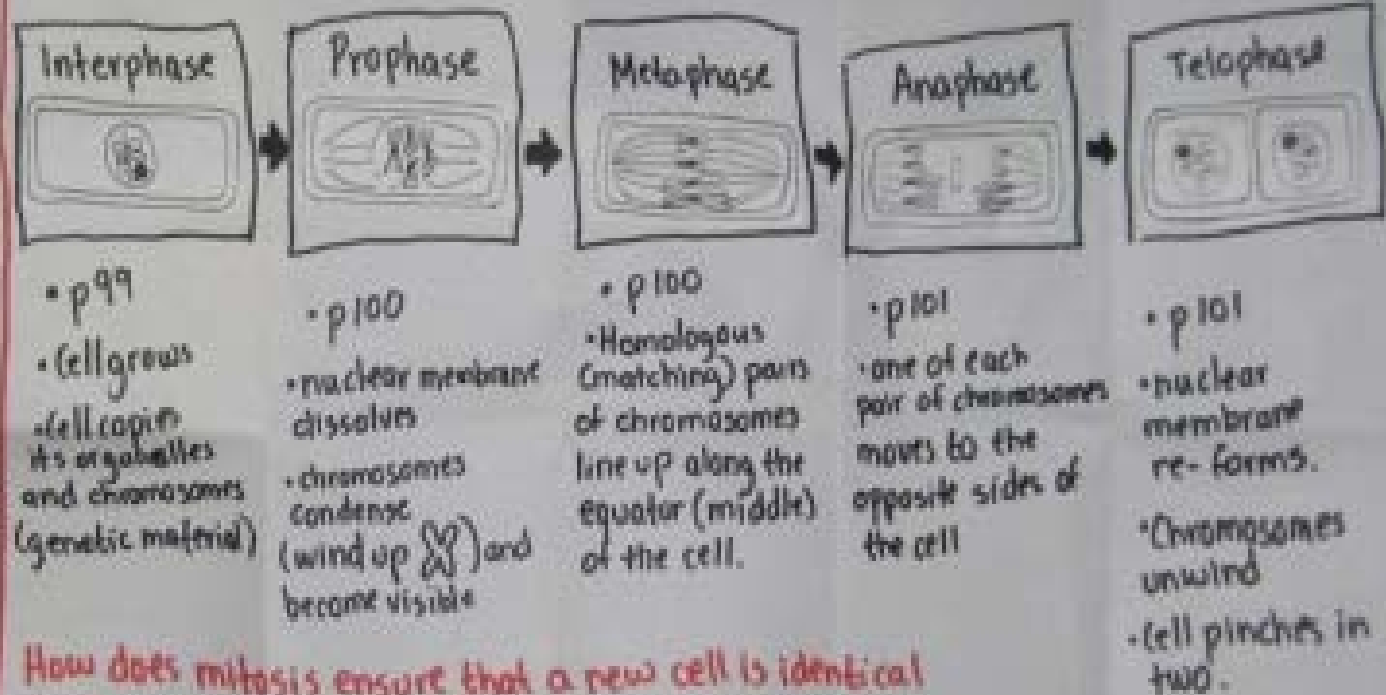 Interphase
Prophase
Metaphase
Anaphase
Telophase
• p99
• Cell grows
• Cell copies
its organelles
and chromosomes
(genetic material)
• p100
• nuclear membrane
dissolves
• chromosomes
condense
(wind up) and
become visible
• p100
• Homologous
(matching) pairs
of chromosomes
line up along the
equator (middle)
of the cell.
• p101
• one of each
pair of chromosomes
moves to the
opposite sides of
the cell
• p101
• nuclear
membrane
re-forms.
• Chromosomes
unwind
• Cell pinches in
two.
How does mitosis ensure that a new cell is identical